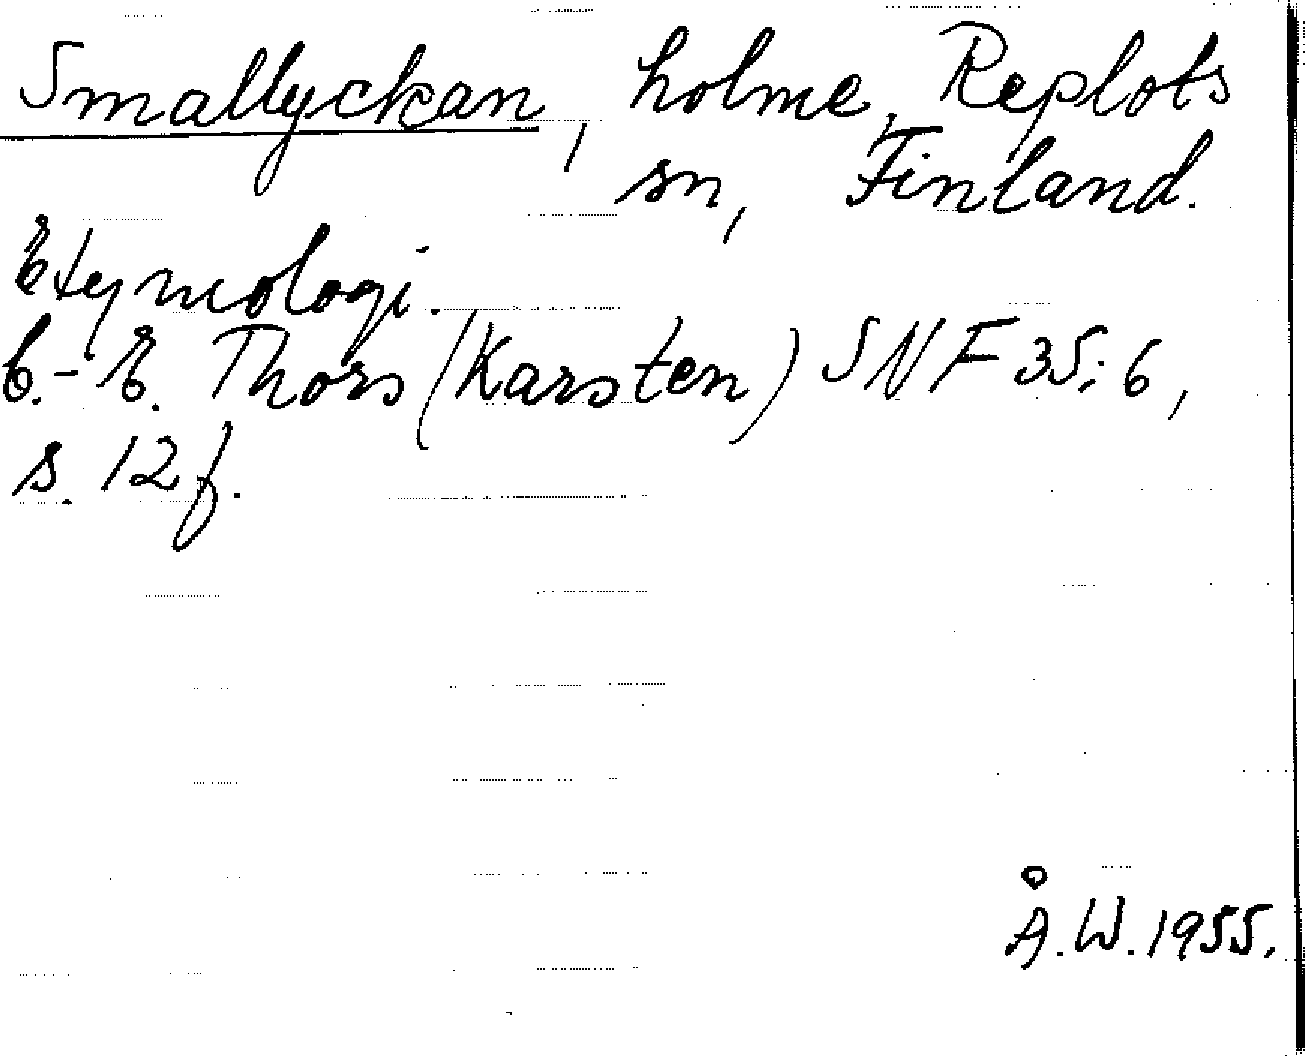 Smallyckan, holme, Replots
sn, Finland.
Etymologi.
C.-E. Thors (Karsten) SNF 35:6,
s. 12 f.
Å.W. 1955.